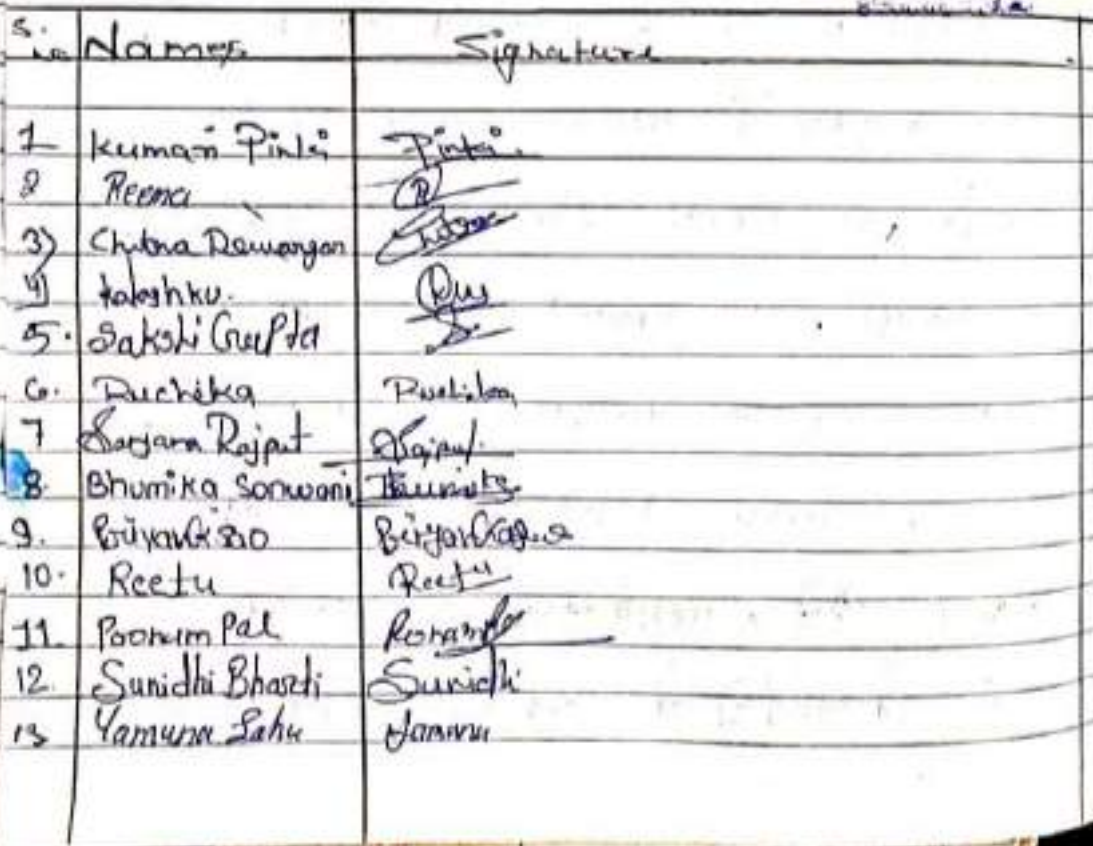 S. no Names Signature
1 Kumari Pinki Pinki
2 Reema R
3) Chitra Dewangan Chitra
4)
5. Sakshi Gupta S
6. Ruchika Ruchika
7 Sanjana Rajput Rajput
8. Bhumika Sonwani Bhumika
9.
10. Reetu Reetu
11. Poonum Pal Ponam
12. Sunidhi Bharti Sunidhi
13 Yamuna Sahu Yamuna